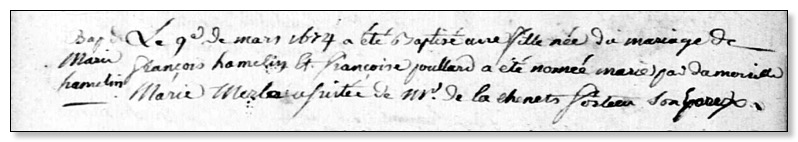 Bap. Le 9e de mars 1674 a été Baptisé une fille née du mariage de
Marie françois hamelin Et françoise poullard a été nomée marie par damoiselle
hamelin Marie Mezleu assistée de Mr. de la chenets fosteau son Epoux.